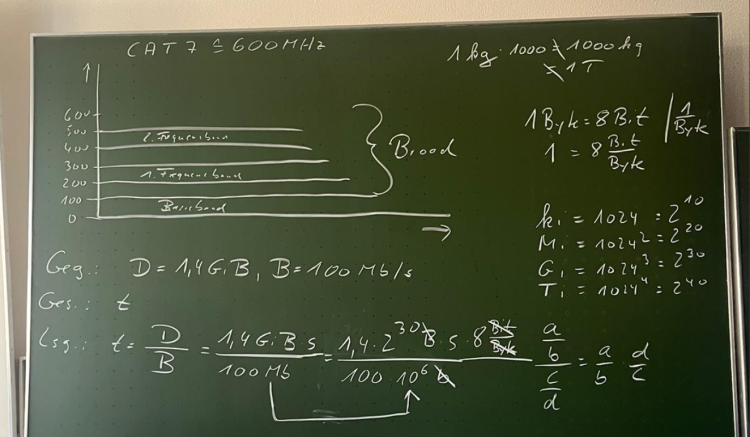 CAT 7 ≙ 600 MHz
1 kg · 1000 = 1000 kg
= 1 T
600
500
2. Frequenzband
400
300
1. Frequenzband
200
100
Basisband
0
Broad
1 Byte = 8 Bit | 1/Byte
1 = 8 Bit/Byte
ki = 1024 = 2^10
Mi = 1024^2 = 2^20
Gi = 1024^3 = 2^30
Ti = 1024^4 = 2^40
Geg.: D = 1,4 GiB, B = 100 Mb/s
Ges.: t
Lsg.: t = D/B = 1,4 GiB s / 100 Mb = 1,4 · 2^30 B · s · 8 Bit/Byte / 100 · 10^6 b
a/b / c/d = a/b · d/c